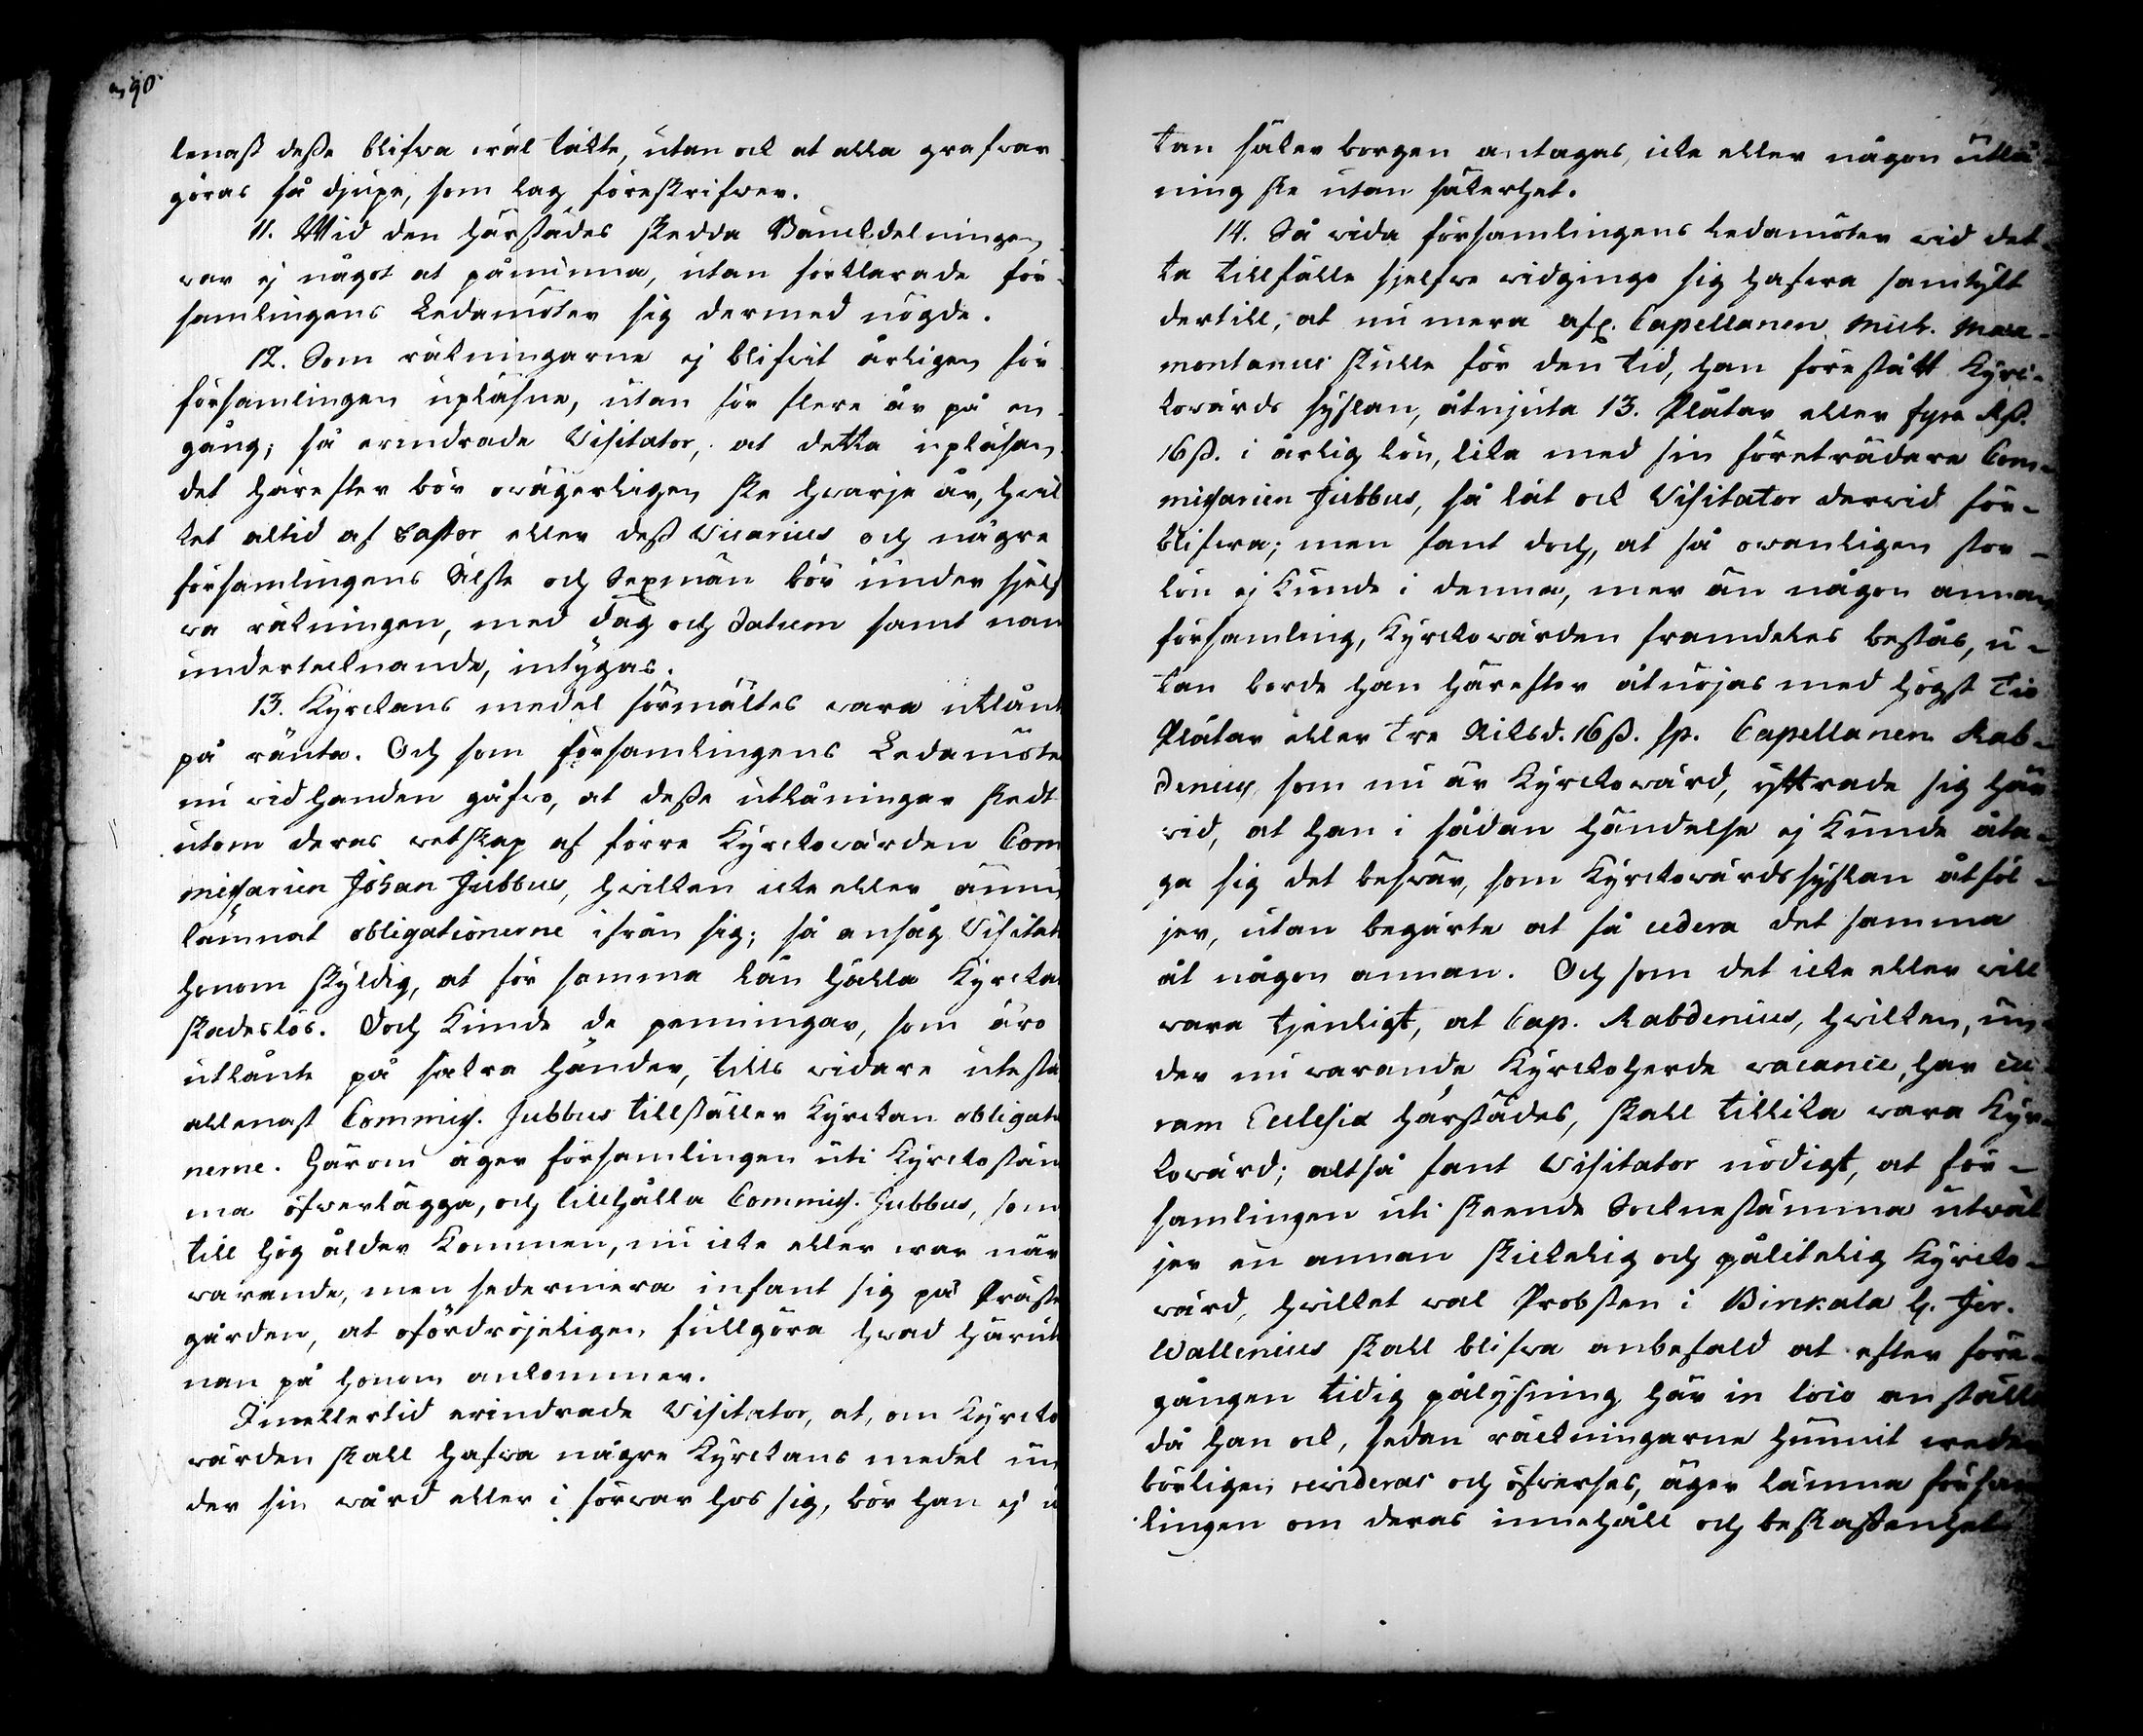 90
lenast desse blifwa wäl täkte, utan ock at alla grafwar
göras så djupe, som lag föreskrifwer.
11. Wid den härstädes skedda Bänckdelningen
war ej något at påminna, utan förklarade för-
samlingens Ledamöter sig dermed nögde.
12. Som räkningarne ej blifwit årligen för
församlingen upläsne, utan för flere år på en
gång; så erindrade Visitator, at detta upläsan-
det härefter bör owägerligen ske hwarje år, hwil
ket altid af Pastor eller dess Vicarius och några
församlingens Älste och Sexmän bör under sjelf
wa räkningen, med dag och datum samt namns
undertecknande, intygas.
13. Kyrckans medel förmältes wara utlånte
på ränta. Och som församlingens Ledamöter
nu wid handen gåfwo, at desse utlåningar skedt
utom deras wetskap af förre Kyrckowärden Com
missarien Johan Jubbus, hwilken icke eller ännu
lämnat obligationerne ifrån sig; så ansåg Visitat
honom skyldig, at för samma lån hålla Kyrckan
skadeslös. Doch kunde de penningar, som äro
utlånte på säkra händer, tills widare utestå
allenast Commiss. Jubbus tillställer Kyrckan obligatio
nerne. Härom äger församlingen uti Kyrckostäm
ma öfwerlägga, och tillhålla Commiss. Jubbus, som
till hög ålder kommen, nu icke eller war när
warande, men sedermera infant sig på Präste
gården, at ofördröjeligen fullgöra hwad härut
nan på honom ankommer.
Imellertid erindrade Visitator, at, om Kyrcko
wärden skall hafwa några Kyrckans medel un
der sin wård eller i förwar hos sig, bör han ej u
tan säker borgen antagas, icke eller någon utlå
ning ske utan säkerhet.
14. Så wida församlingens Ledamöter wid det-
ta tillfälle sjelfwe widgingo sig hafwa samtykt
dertill, at nu mera afl. Capellanen Mich. Mar-
montanus skulle för den tid, han förestått Kyrc-
kowärds syslan, åtnjuta 13. Plåtar eller fyra Rß.
16ß. i årlig lön, lika med sin företrädare Com-
missarien Jubbus, så lät ock Visitator derwid för-
blifwa; men fant doch, at så owanligen stor
lön ej kunde i denna, mer än någon annan
församling, Kyrckowärden framdeles bestås, u-
tan borde han härefter åtnöjas med högst tio
Plåtar eller tre Riksd. 16ß. sp. Capellanen Rab-
denius, som nu är Kyrckowärd, yttrade sig här
wid, at han i sådan händelse ej kunde åta-
ga sig det beswär, som Kyrckowärdssyslan åtföl-
jer, utan begärte at få cedera det samma
åt någon annan. Och som det icke eller will
wara tjenligt, at Cap. Rabdenius, hwilken, un-
der nu warande Kyrckoherde vacance, har cu
ram Ecclesiæ härstädes, skall tillika wara Kyr-
kowärd; altså fant Visitator nödigt, at för-
samlingen uti skeende Socknestämma utwäl
jer en annan skickelig och pålitelig Kyrcko-
wärd, hwilket wal Probsten i Birkala H. Jer.
Wallenius skall blifwa anbefald at efter före-
gången tidig pålysning här in loco anställa
då han ock, sedan räckningarne hunnit weder
börligen revideras och öfwerses, äger lämna försam
lingen om deras innehåll och beskaffenhet